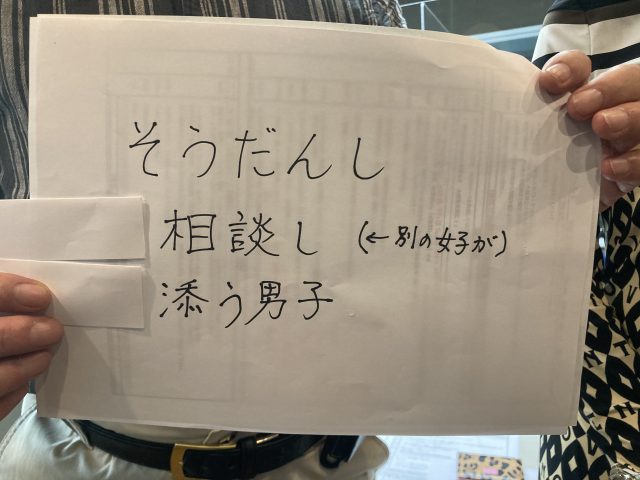 そうだんし
相談し (←別の女子が)
添う男子